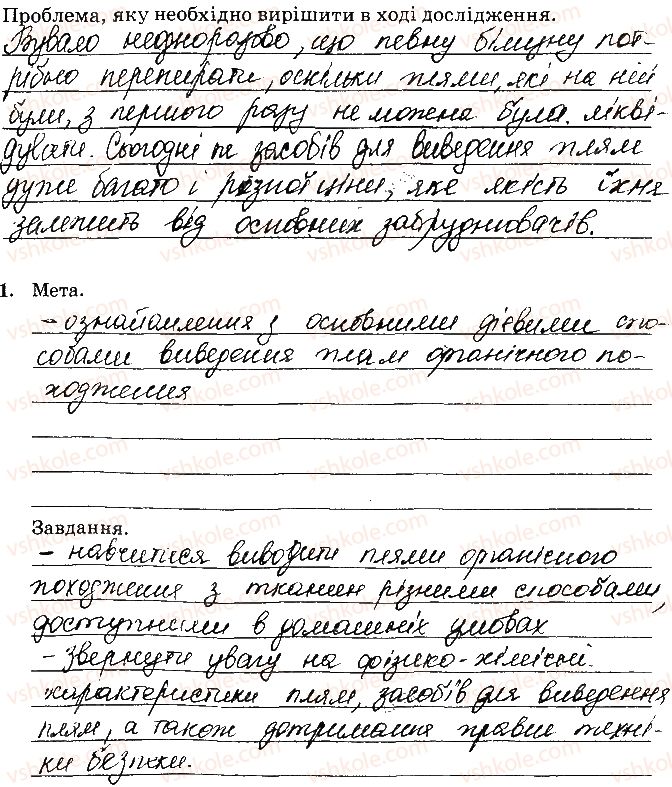 Проблема, яку необхідно вирішити в ході дослідження.
Бувало неоднорозово, що певну білизну пот-
рібно перепирати, оскільки плями, які на ній
були, з першого разу не можена була лікві-
дувати. Сьогодні є засобів для виведення плям
дуже багато і різної ціни, яке якість їхня
залежить від основних забруднювачів.
1. Мета.
- ознайомлення з основними дієвими спо-
собами виведення плям органічного по-
ходження
Завдання.
- навчитися виводити плями органічного
походження з тканин різними способами,
доступними в домашніх умовах
- Звернути увагу на фізико-хімічні
характеристики плям, засобів для виведення
плям, а також дотримання правил техні-
ки безпеки.